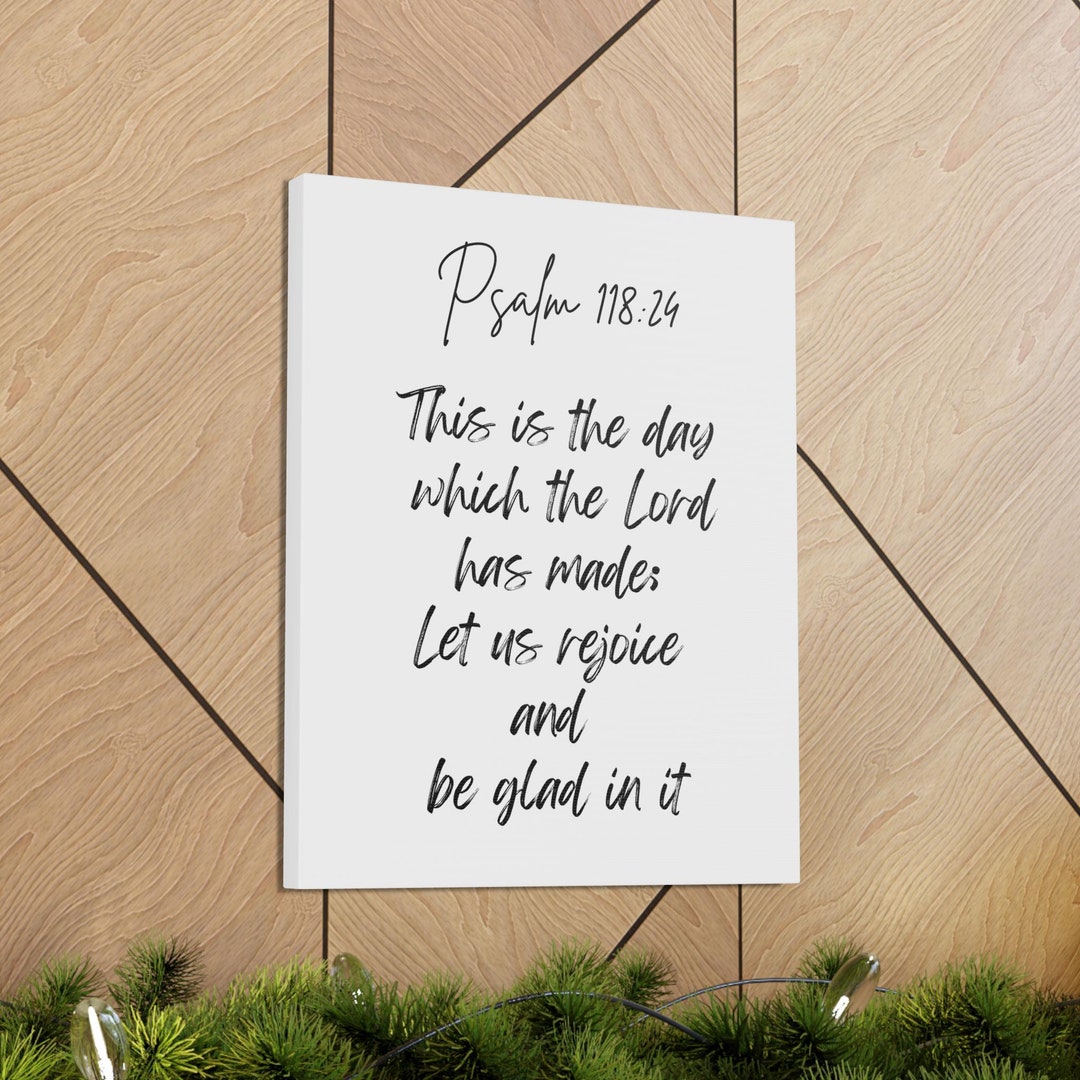 Psalm 118:24
This is the day
which the Lord
has made;
Let us rejoice
and
be glad in it